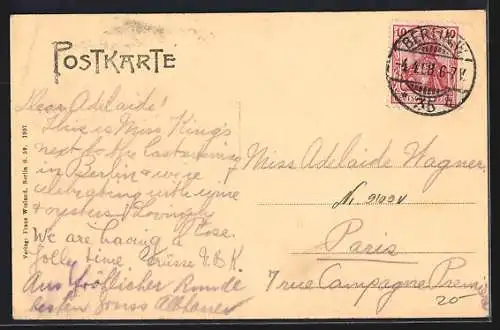 POSTKARTE
10 10
BERLIN W
4.4.08 6-7 V.
35
Dear Adelaide!
This is Miss King's
next to the last evening
in Berlin & we're
celebrating with wine
& oysters! Lovingly
Rose.
We are having a
jolly time Grüsse E.B.K.
Aus fröhlicher Runde
besten Gruss
Verlag: Franz Weiland, Berlin 1907
Miss Adelaide Wagner.
Paris
7 rue Campagne Première
20